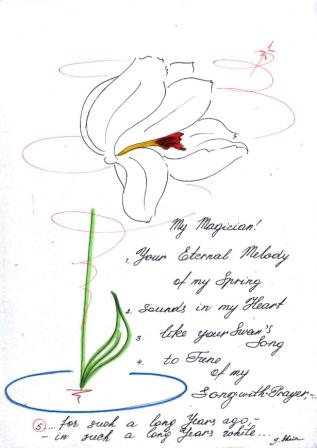 My Magician!
1. Your Eternal Melody
of my Spring
2. Sounds in my Heart
3. like your Swan's
Song
4. to Tune
of my
Song with Prayer,-
5 ... for such a long Years ago,-
- in such a long Years while.